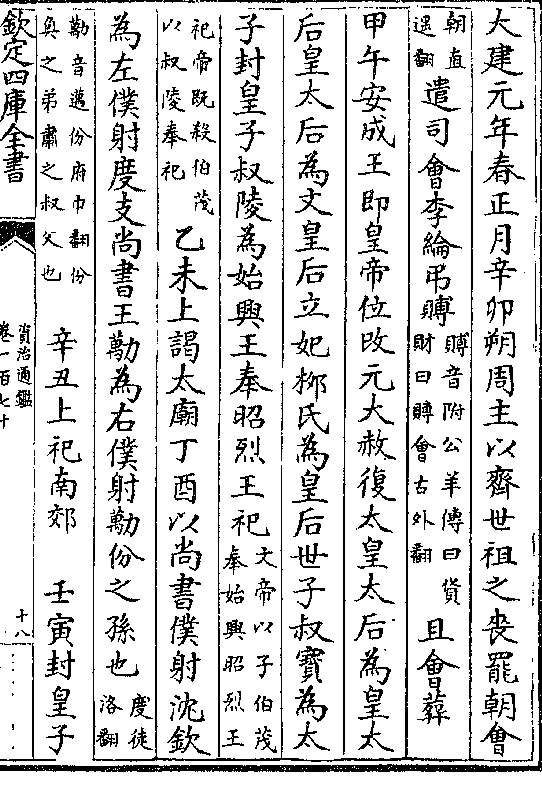 大建元年春正月辛卯朔周主以齊世祖之喪罷朝會
朝直遥翻遣司會李綸弔賻賻音附公羊傳曰貨財曰賻會古外翻且會葬
甲午安成王即皇帝位改元大赦復太皇太后為皇太
后皇太后為文皇后立妃栁氏為皇后世子叔寶為太
子封皇子叔陵為始興王奉昭烈王祀文帝以子伯茂奉始興昭烈王
祀帝既殺伯茂以叔陵奉祀乙未上謁太廟丁酉以尚書僕射沈欽
為左僕射度支尚書王勱為右僕射勱份之孫也度徒洛翻
勱音邁份府巾翻份奐之弟肅之叔父也辛丑上祀南郊 壬寅封皇子
欽定四庫全書
資治通鑑
卷一百七十
十八